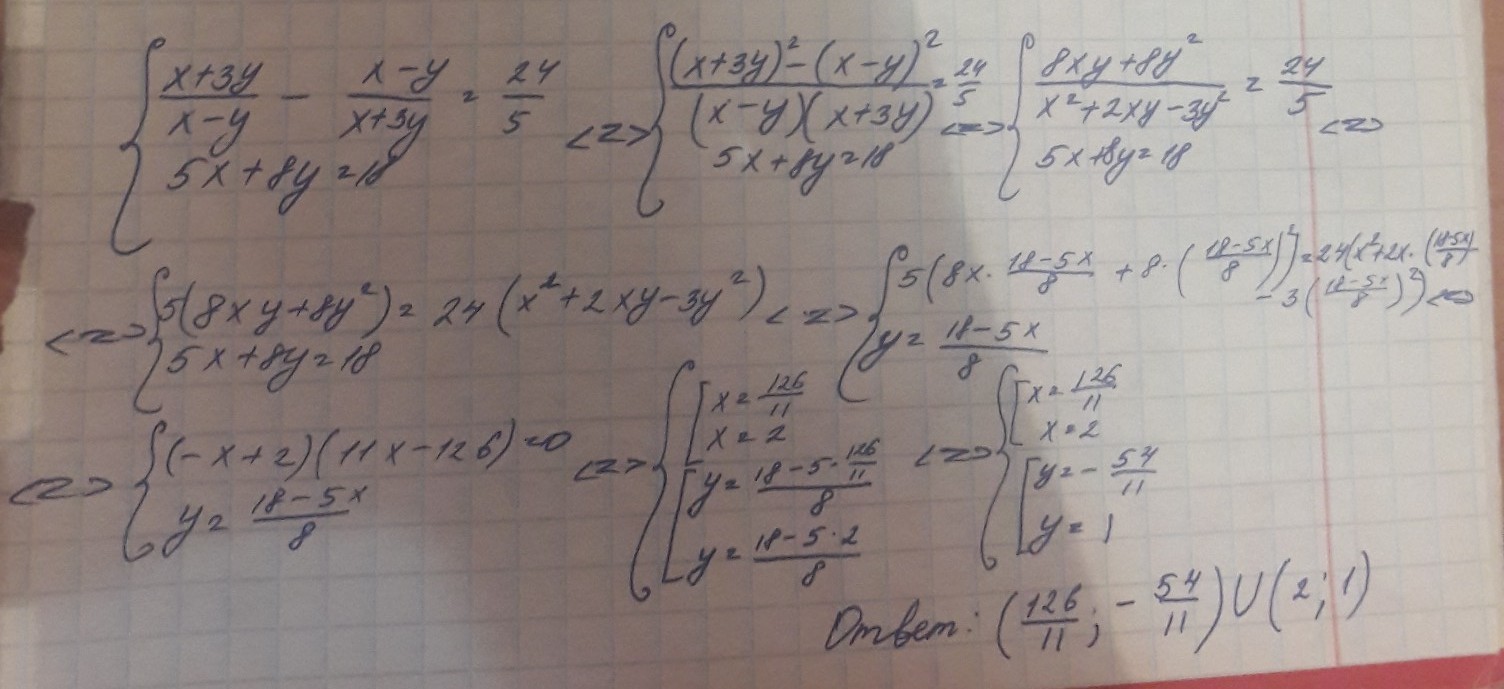 { (x+3y)/(x-y) - (x-y)/(x+3y) = 24/5
5x+8y=18
<=> { ((x+3y)² - (x-y)²)/((x-y)(x+3y)) = 24/5
5x+8y=18
<=> { (8xy+8y²)/(x²+2xy-3y²) = 24/5
5x+8y=18 <=>
<=> { 5(8xy+8y²) = 24(x²+2xy-3y²)
5x+8y=18
<=> { 5(8x·(18-5x)/8 + 8·((18-5x)/8)²) = 24(x²+2x·((18-5x)/8) - 3((18-5x)/8)²) <=>
y = (18-5x)/8
<=> { (-x+2)(11x-126)=0
y = (18-5x)/8
<=> { [ x = 126/11
x = 2
[ y = (18-5·126/11)/8
y = (18-5·2)/8
<=> { [ x = 126/11
x = 2
[ y = -54/11
y = 1
Ответ: (126/11; -54/11) U (2; 1)